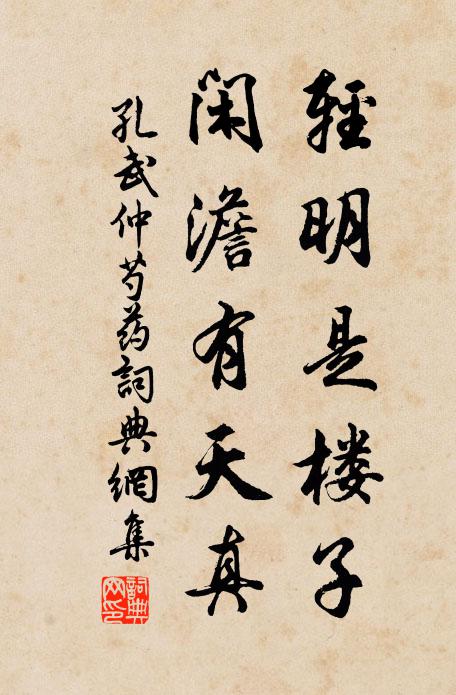 輕明是楼子
闲澹有天真
孔武仲芍药詞典網集
詞典网印